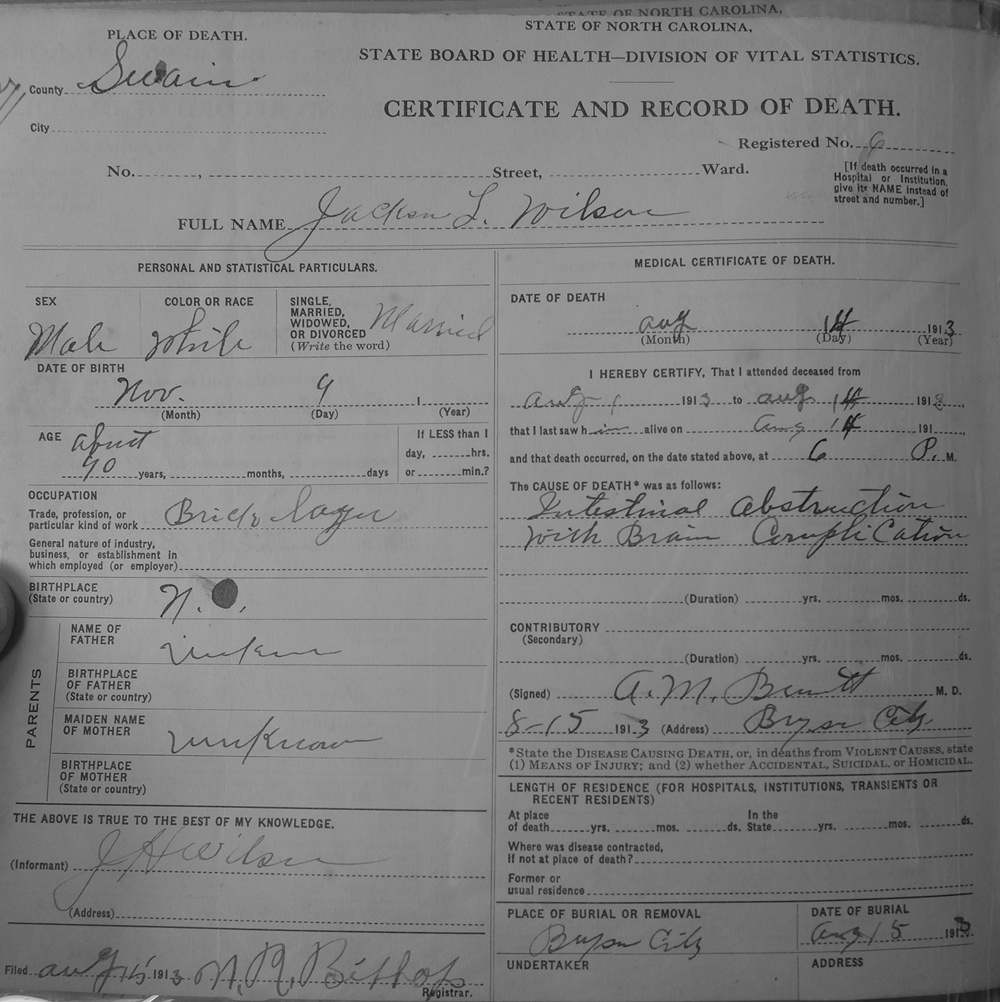 STATE OF NORTH CAROLINA,
STATE OF NORTH CAROLINA,
STATE BOARD OF HEALTH—DIVISION OF VITAL STATISTICS.
CERTIFICATE AND RECORD OF DEATH.
PLACE OF DEATH.
County Swain
City
Registered No. 6
No. , Street, Ward.
[If death occurred in a
Hospital or Institution,
give its NAME instead of
street and number.]
FULL NAME Jackson L. Wilson
PERSONAL AND STATISTICAL PARTICULARS.
SEX
Male
COLOR OR RACE
White
SINGLE,
MARRIED,
WIDOWED,
OR DIVORCED
(Write the word)
Married
DATE OF BIRTH
Nov. 9 1
(Month) (Day) (Year)
AGE about
70 years, months, days
If LESS than 1
day, hrs.
or min.?
OCCUPATION
Trade, profession, or
particular kind of work Brick layer
General nature of industry,
business, or establishment in
which employed (or employer)
BIRTHPLACE
(State or country) N.
PARENTS
NAME OF
FATHER
BIRTHPLACE
OF FATHER
(State or country)
MAIDEN NAME
OF MOTHER unknown
BIRTHPLACE
OF MOTHER
(State or country)
THE ABOVE IS TRUE TO THE BEST OF MY KNOWLEDGE.
(Informant) J H Wilson
(Address)
Filed Aug 15 1913 N. R. Bishop
Registrar.
MEDICAL CERTIFICATE OF DEATH.
DATE OF DEATH
Aug 14 1913
(Month) (Day) (Year)
I HEREBY CERTIFY, That I attended deceased from
Aug 1 1913 to Aug 14 1913,
that I last saw him alive on Aug 14 191 ,
and that death occurred, on the date stated above, at 6 P. M.
The CAUSE OF DEATH* was as follows:
Intestinal Obstruction
With Brain Complication
(Duration) yrs. mos. ds.
CONTRIBUTORY
(Secondary)
(Duration) yrs. mos. ds.
(Signed) A. M. Bennett M. D.
8-15 1913 (Address) Bryson City
*State the DISEASE CAUSING DEATH, or, in deaths from VIOLENT CAUSES, state
(1) MEANS OF INJURY; and (2) whether ACCIDENTAL, SUICIDAL, or HOMICIDAL.
LENGTH OF RESIDENCE (FOR HOSPITALS, INSTITUTIONS, TRANSIENTS OR
RECENT RESIDENTS)
At place
of death yrs. mos. ds.
In the
State yrs. mos. ds.
Where was disease contracted,
If not at place of death?
Former or
usual residence
PLACE OF BURIAL OR REMOVAL
Bryson City
DATE OF BURIAL
Aug 15 1913
UNDERTAKER
ADDRESS